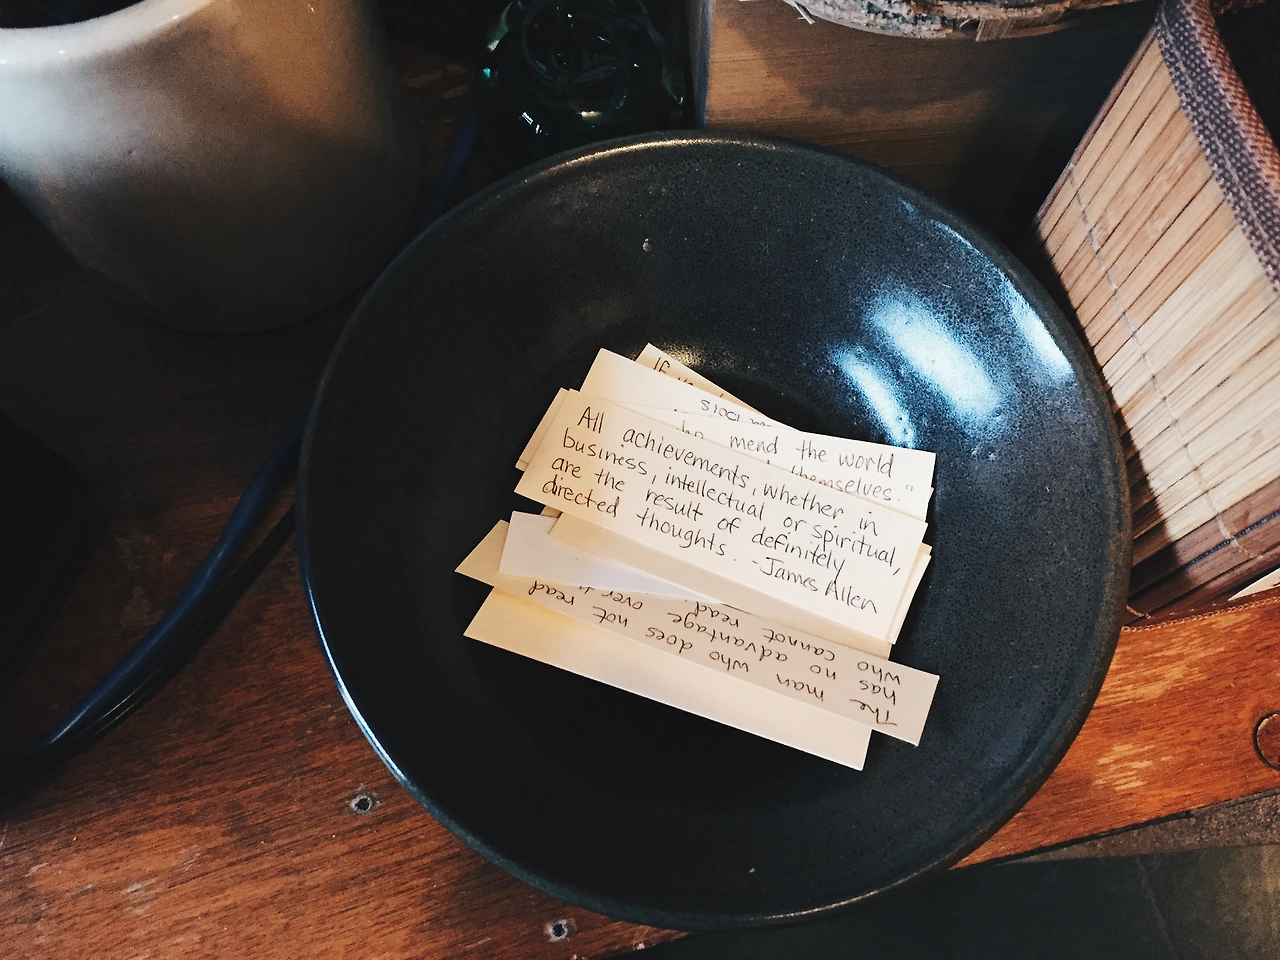 If
mend the world
themselves."
All achievements, whether in
business, intellectual or spiritual,
are the result of definitely
directed thoughts. -James Allen
The man who does not read
has no advantage over
who cannot read